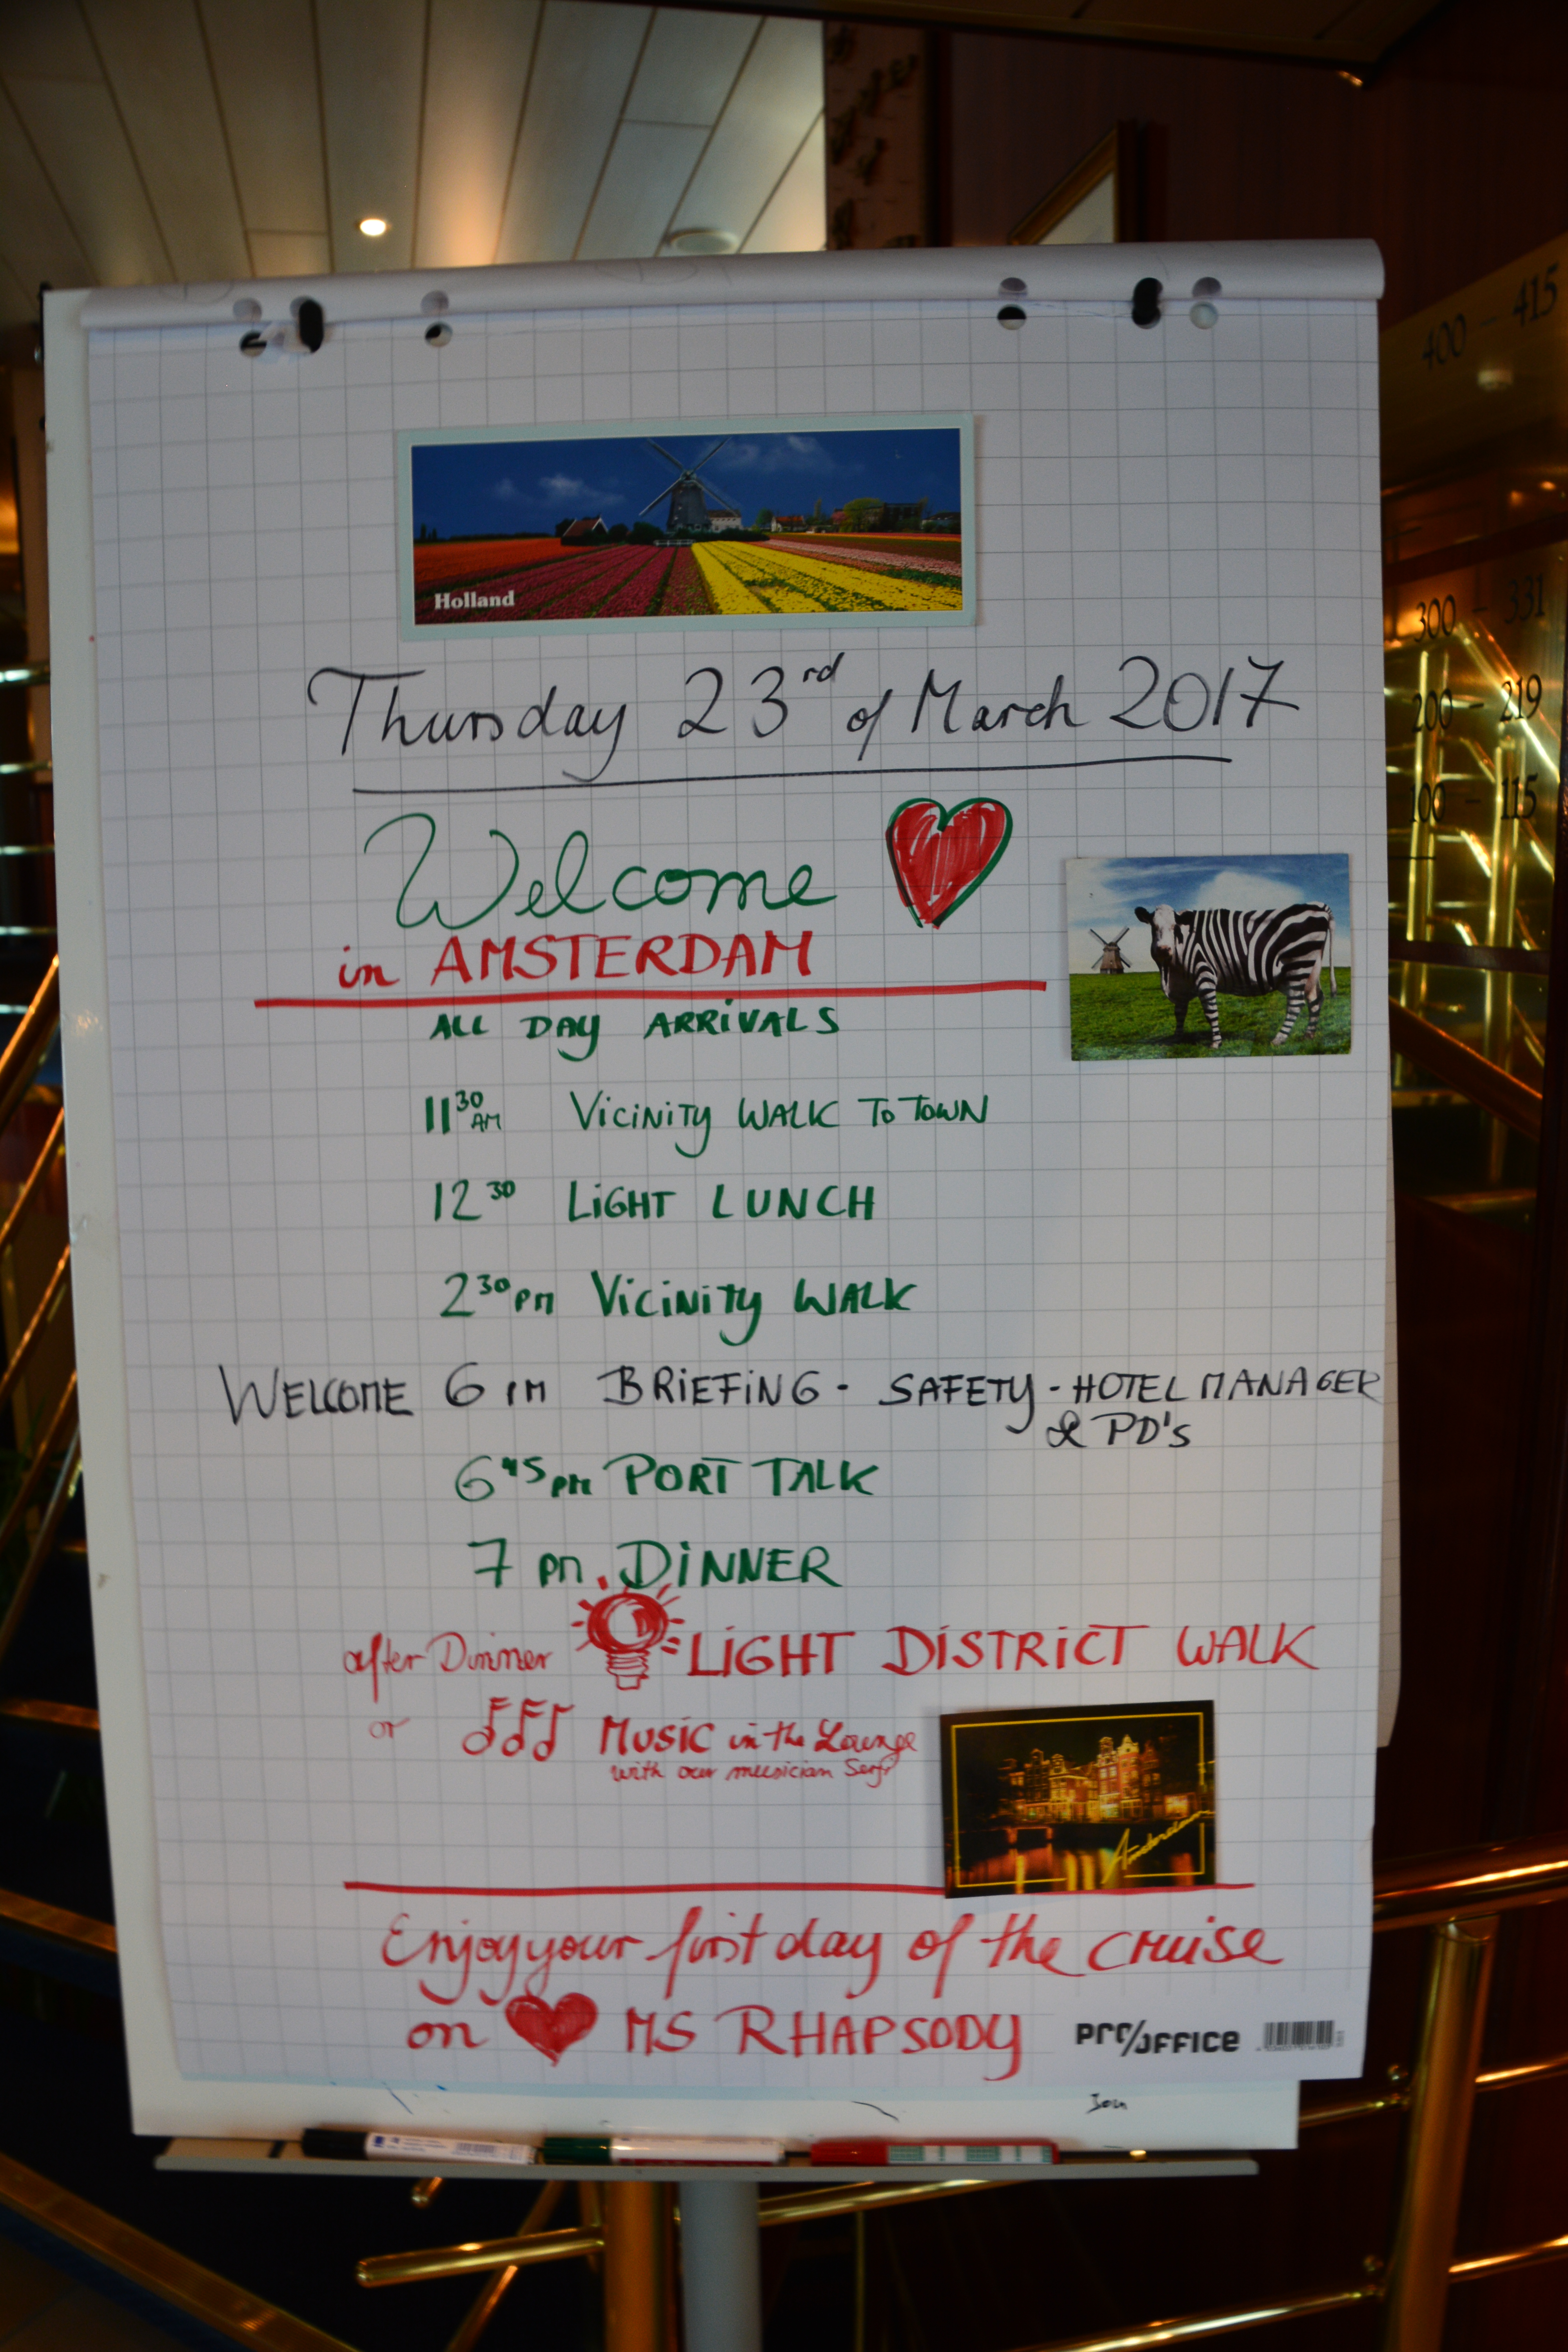 400 - 415
300 - 331
200 - 219
100 - 115
Holland
Thursday 23rd of March 2017
Welcome
in AMSTERDAM
ALL DAY ARRIVALS
11 30 AM VICINITY WALK TO TOWN
12 30 LIGHT LUNCH
2 30 PM VICINITY WALK
WELCOME 6 PM BRIEFING - SAFETY - HOTEL MANAGER
& PD's
6 45 PM PORT TALK
7 PM. DINNER
after Dinner LIGHT DISTRICT WALK
or MUSIC in the Lounge
with our musician
Amsterdam
Enjoy your first day of the cruise
on MS RHAPSODY
PRO/OFFICE